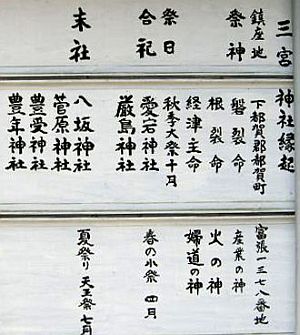 三宮神社縁起
鎮座地 下都賀郡都賀町 富張一三七八番地
祭神 磐裂命 産業の神
根裂命 火の神
経津主命 婦道の神
祭日 秋季大祭十月 春の小祭 四月
合祀 愛宕神社
厳島神社
末社 八坂神社 夏祭り 天王祭 七月
菅原神社
豊受神社
豊年神社